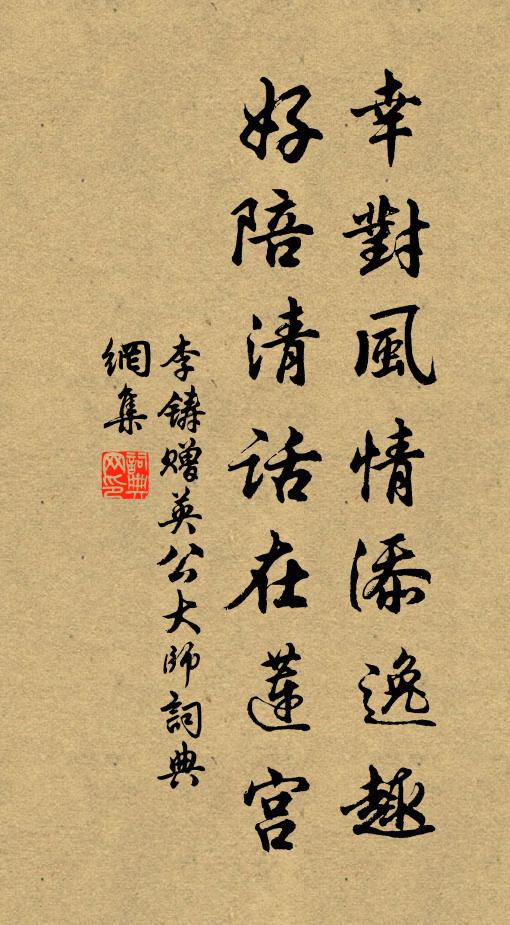 幸對風情添逸趣
好陪清話在蓮宮
李鑄贈英公大師詞典
網集
詞典網印